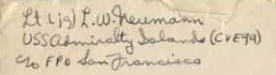 Lt (jg) L.W. Neumann
USS Admiralty Islands (CVE99)
c/o FPO San Francisco